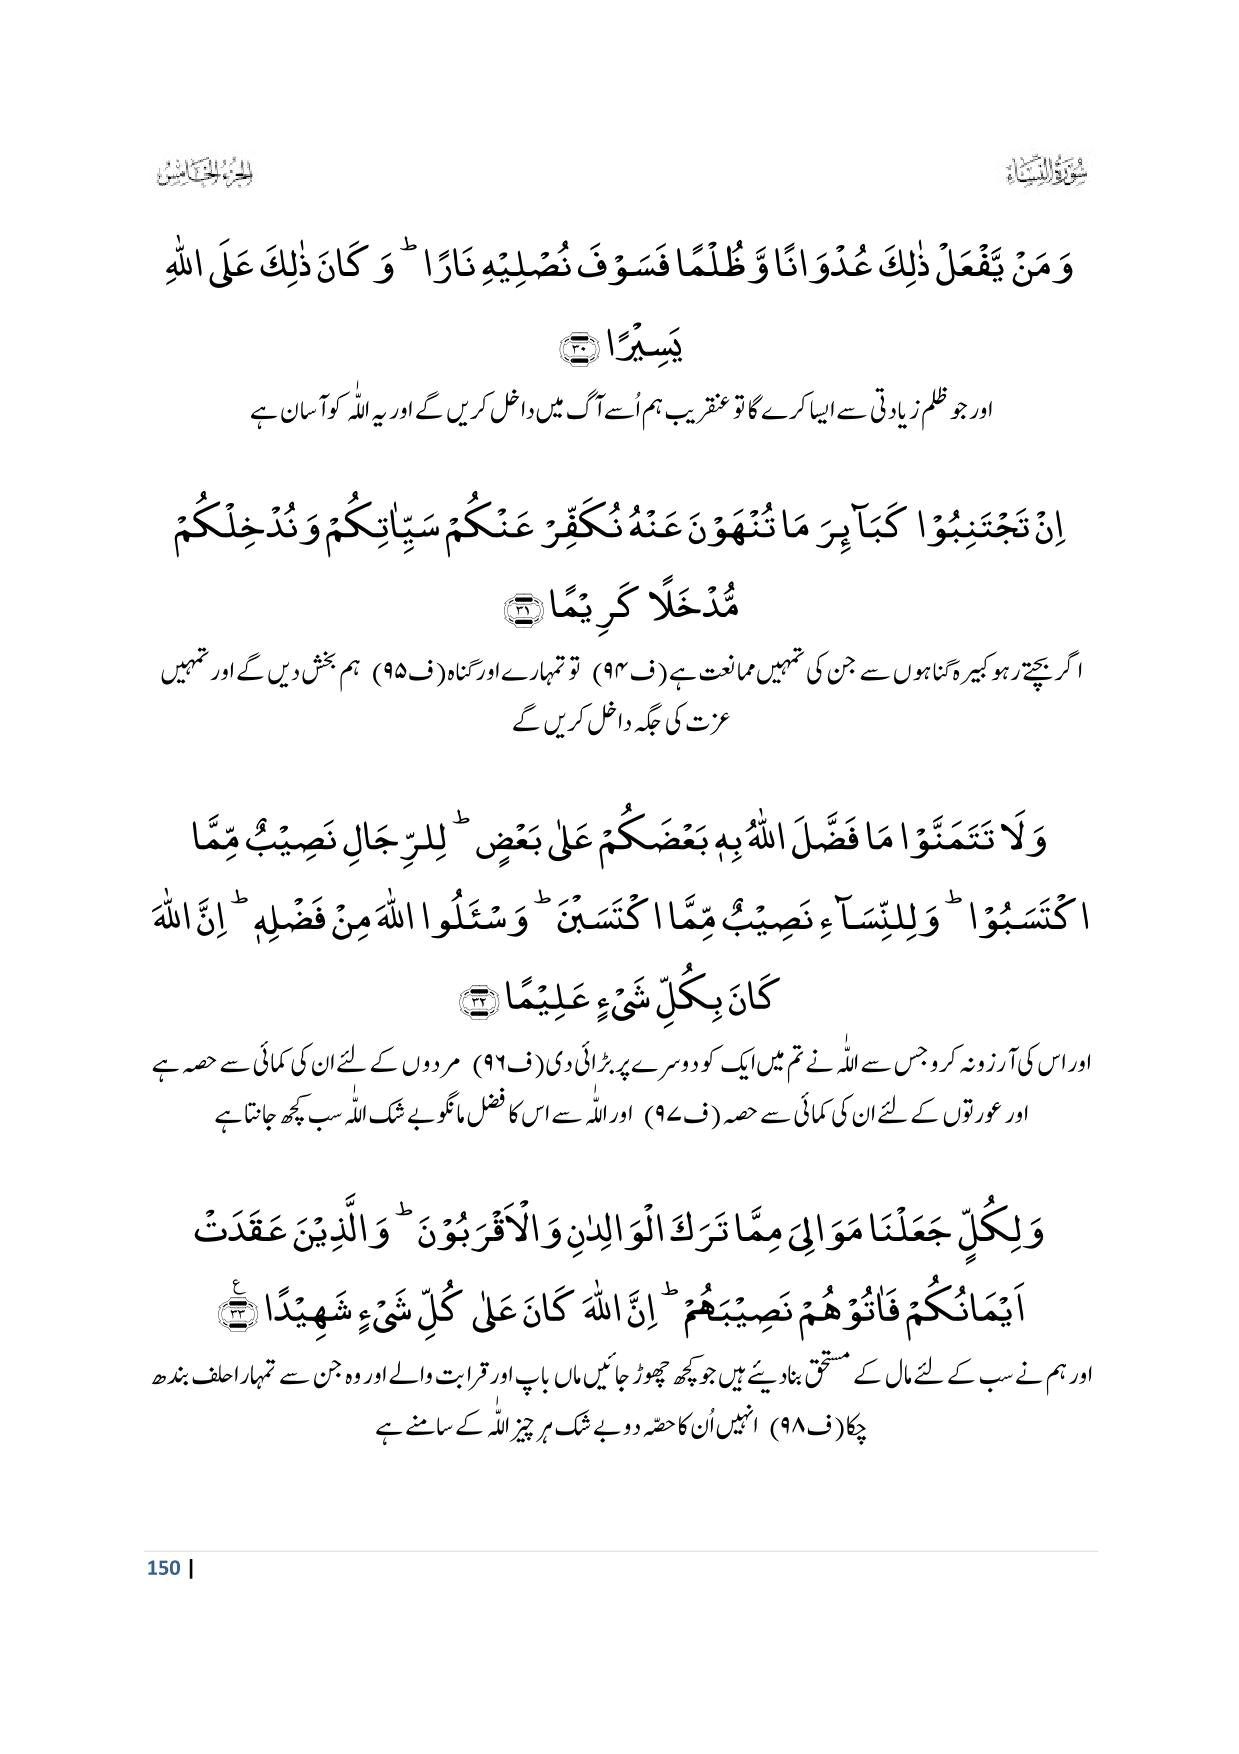 سُوۡرَۃُ النِّسَآءِ
الجزء الخامس
وَ مَنۡ یَّفۡعَلۡ ذٰلِکَ عُدۡوَانًا وَّ ظُلۡمًا فَسَوۡفَ نُصۡلِیۡہِ نَارًا ؕ وَ کَانَ ذٰلِکَ عَلَی اللّٰہِ
یَسِیۡرًا ﴿۳۰﴾
اور جو ظلم زیادتی سے ایسا کرے گا تو عنقریب ہم اُسے آگ میں داخل کریں گے اور یہ اللّٰہ کو آسان ہے
اِنۡ تَجۡتَنِبُوۡا کَبَآئِرَ مَا تُنۡہَوۡنَ عَنۡہُ نُکَفِّرۡ عَنۡکُمۡ سَیِّاٰتِکُمۡ وَ نُدۡخِلۡکُمۡ
مُّدۡخَلًا کَرِیۡمًا ﴿۳۱﴾
اگر بچتے رہو کبیرہ گناہوں سے جن کی تمہیں ممانعت ہے (ف۹۴) تو تمہارے اور گناہ (ف۹۵) ہم بخش دیں گے اور تمہیں
عزت کی جگہ داخل کریں گے
وَ لَا تَتَمَنَّوۡا مَا فَضَّلَ اللّٰہُ بِہٖ بَعۡضَکُمۡ عَلٰی بَعۡضٍ ؕ لِلرِّجَالِ نَصِیۡبٌ مِّمَّا
اکۡتَسَبُوۡا ؕ وَ لِلنِّسَآءِ نَصِیۡبٌ مِّمَّا اکۡتَسَبۡنَ ؕ وَ سۡـَٔلُوا اللّٰہَ مِنۡ فَضۡلِہٖ ؕ اِنَّ اللّٰہَ
کَانَ بِکُلِّ شَیۡءٍ عَلِیۡمًا ﴿۳۲﴾
اور اس کی آرزو نہ کرو جس سے اللّٰہ نے تم میں ایک کو دوسرے پر بڑائی دی (ف۹۶) مردوں کے لئے ان کی کمائی سے حصہ ہے
اور عورتوں کے لئے ان کی کمائی سے حصہ (ف۹۷) اور اللّٰہ سے اس کا فضل مانگو بے شک اللّٰہ سب کچھ جانتا ہے
وَ لِکُلٍّ جَعَلۡنَا مَوَالِیَ مِمَّا تَرَکَ الۡوَالِدٰنِ وَ الۡاَقۡرَبُوۡنَ ؕ وَ الَّذِیۡنَ عَقَدَتۡ
اَیۡمَانُکُمۡ فَاٰتُوۡہُمۡ نَصِیۡبَہُمۡ ؕ اِنَّ اللّٰہَ کَانَ عَلٰی کُلِّ شَیۡءٍ شَہِیۡدًا ﴿٪۳۳﴾
اور ہم نے سب کے لئے مال کے مستحق بنا دیئے ہیں جو کچھ چھوڑ جائیں ماں باپ اور قرابت والے اور وہ جن سے تمہارا حلف بندھ
چکا (ف۹۸) انہیں اُن کا حصّہ دو بے شک ہر چیز اللّٰہ کے سامنے ہے
150 |